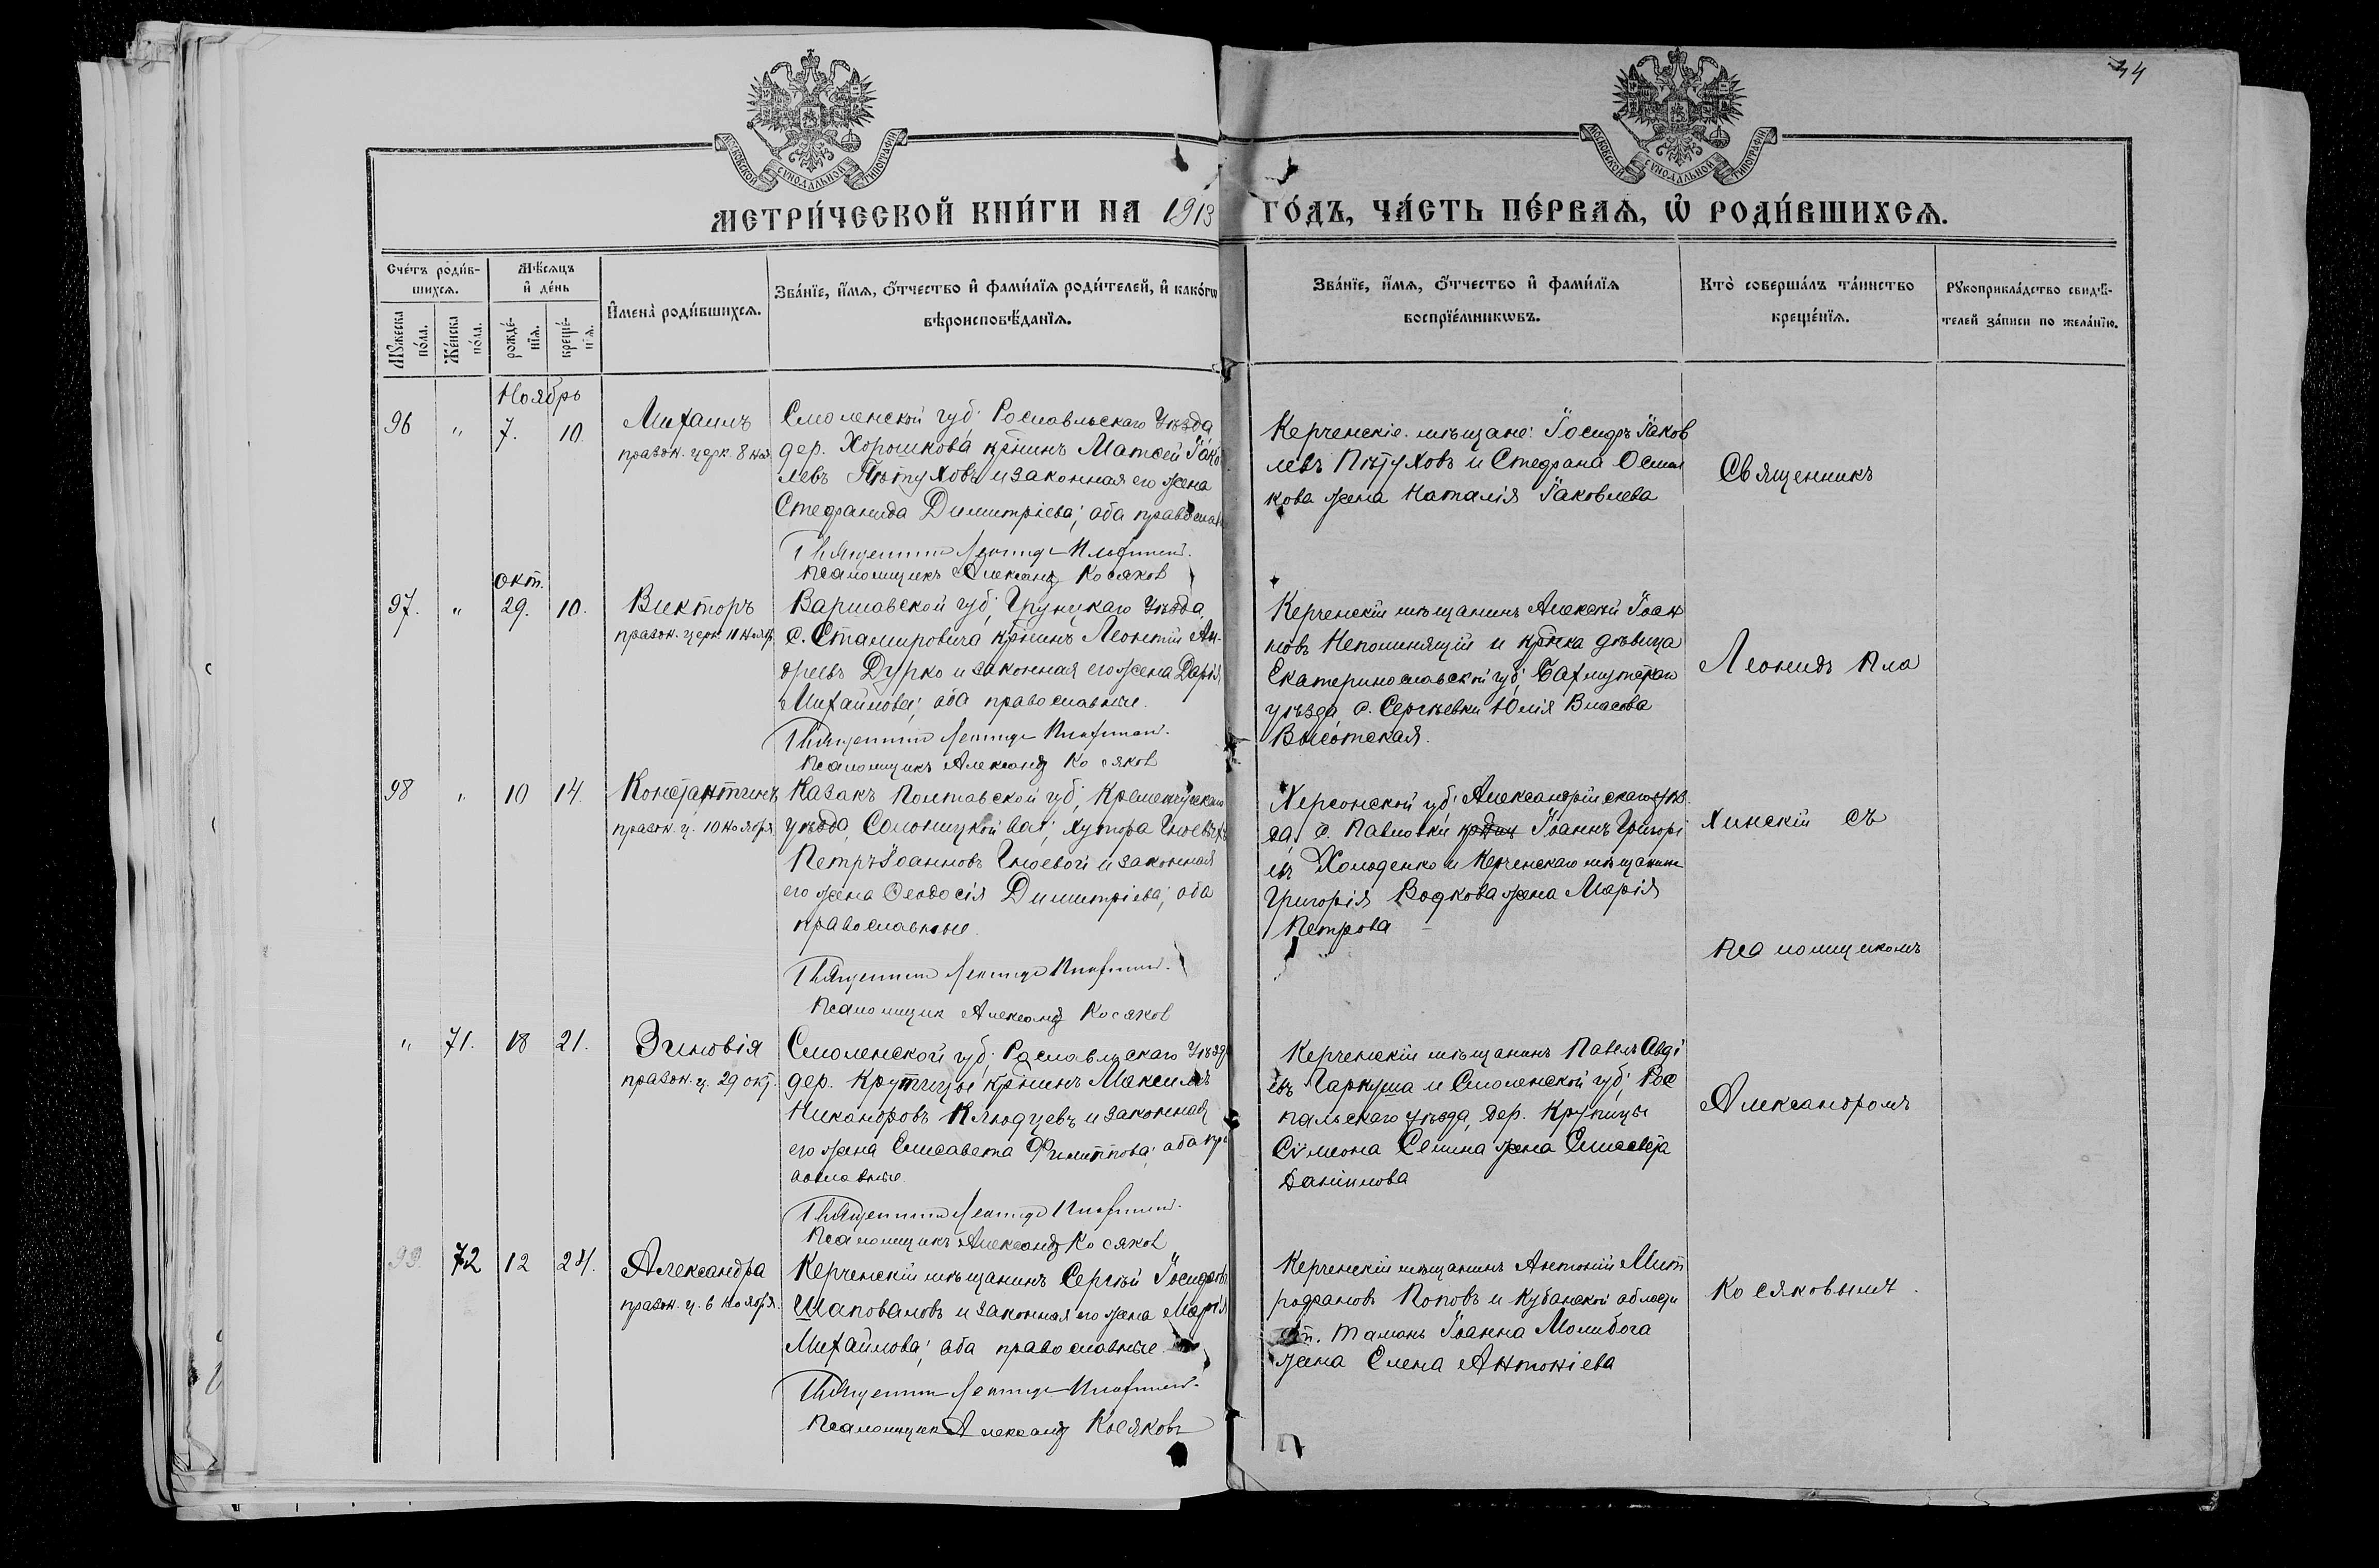 34
МОСКОВСКОЙ СѴНОДАЛЬНОЙ ТИПОГРАФІИ
МОСКОВСКОЙ СѴНОДАЛЬНОЙ ТИПОГРАФІИ
МЕТРИ́ЧЕСКОЙ КНИ́ГИ НА 1913 ГО́ДЪ, ЧА́СТЬ ПЕ́РВАѦ, Ѡ҆ РОДИ́ВШИХСѦ.
Сче́тъ роди́в-
шихсѧ.
Мꙋжеска по́ла.
Же́нска по́ла.
Мѣ́сѧцъ
и҆ де́нь
рожде́-
нїѧ.
креще́-
нїѧ.
И҆мена̀ роди́вшихсѧ.
Зва́нїе, и҆́мѧ, ѻ҆́тчество и҆ фами́лїѧ роди́телей, и҆ како́гѡ
вѣроисповѣ́данїѧ.
Зва́нїе, и҆́мѧ, ѻ҆́тчество и҆ фами́лїѧ
воспрїе́мникѡвъ.
Кто̀ соверша́лъ та́инство
креще́нїѧ.
Рꙋкоприкла́дство свидѣ́-
телей за́писи по жела́нїю.
Ноябрь
96 " 7. 10.
Михаилъ
празон. церк. 8 ноя
Смоленской губ. Рославльскаго уѣзда
дер. Хорошкова кр̅нинъ Матѳей Іако
левъ Пѣтуховъ и законная его жена
Стефанида Димитріева; оба правосла
Священникъ Леонидъ
Псаломщикъ Александ Косяков
Керченскіе мѣщане: Іосифъ Іаков
левъ Пѣтуховъ и Стефана
кова жена Наталія Іаковлева
Священникъ
окт.
97. " 29. 10.
Викторъ
празон. церк. 11 нояб
Варшавской губ. Груецкаго уѣзда
с. Стамировича кр̅нинъ Леонтій Ан-
дреевъ Дурко и законная его жена Дарія
Михайлова; оба православные.
Священникъ Леонидъ
Псаломщикъ Александ Косяков
Керченскій мѣщанинъ Алексѣй Іоан
новъ Непомнящій и кр̅нка дѣвица
Екатеринославской губ. Бахмутскаго
уѣзда, с. Сергѣевки Юлія Власова
Высотская.
Леонидъ Пла
98 " 10 14.
Константинъ
празон. ц. 10 ноября
Казакъ Полтавской губ. Кременчугскаго
уѣзда, Солоницкой вол. хутора
Петръ Іоанновъ Гноевой и законная
его жена Ѳеодосія Димитріева; оба
православные.
Священникъ Леонидъ
Псаломщик Александ Косяков
Херсонской губ. Александрійскаго уѣз
да, с. Павловки Іоаннъ Григорі
евъ Холоденко и Керченскаго мѣщанина
Григорія Водкова жена Марія
Петрова
хинскій съ
псаломщикомъ
" 71. 18 21.
Зиновія
празон. ц. 29 окт.
Смоленской губ. Рославльскаго уѣзд
дер. Крутицы кр̅нинъ Максимъ
Никаноровъ Клюдцевъ и законная
его жена Елисавета Филиппова; оба пр
вославные.
Священникъ Леонидъ
Псаломщикъ Александ Косяков
Керченскій мѣщанинъ Павелъ Авді
евъ Гаркуша и Смоленской губ. Рос
лавльскаго уѣзда, дер. Крупицы
Сѵмеона Сенина жена Елисавета
Даніилова
Александромъ
99. 72 12 24.
Александра
празон. ц. 6 ноября.
Керченскій мѣщанинъ Сергѣй Іосифовъ
Шаповаловъ и законная его жена Марія
Михайлова; оба православные.
Священникъ Леонидъ
Псаломщик Александ Косяковъ
Керченскій мѣщанинъ Антоній Мит
рофановъ Поповъ и Кубанской област
ст. Тамань Іоанна Молибога
жена Елена Антоніева
Косяковымъ.